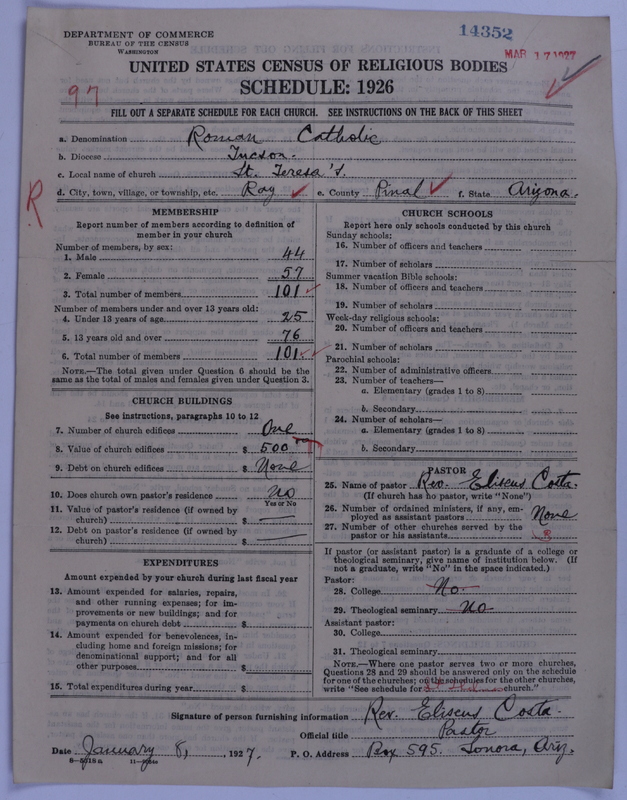 DEPARTMENT OF COMMERCE
BUREAU OF THE CENSUS
WASHINGTON
14352
MAR 17 1927
UNITED STATES CENSUS OF RELIGIOUS BODIES
SCHEDULE: 1926
97
FILL OUT A SEPARATE SCHEDULE FOR EACH CHURCH. SEE INSTRUCTIONS ON THE BACK OF THIS SHEET
a. Denomination Roman Catholic
b. Diocese Tucson.
c. Local name of church St. Teresa's.
d. City, town, village, or township, etc. Ray e. County Pinal f. State Arizona.
R
MEMBERSHIP
Report number of members according to definition of
member in your church
Number of members, by sex:
1. Male 44
2. Female 57
3. Total number of members 101
Number of members under and over 13 years old:
4. Under 13 years of age 25
5. 13 years old and over 76
6. Total number of members 101
NOTE.—The total given under Question 6 should be the
same as the total of males and females given under Question 3.
CHURCH BUILDINGS
See instructions, paragraphs 10 to 12
7. Number of church edifices One
8. Value of church edifices $ 500
9. Debt on church edifices $ None
10. Does church own pastor's residence No
Yes or No
11. Value of pastor's residence (if owned by
church) $ —
12. Debt on pastor's residence (if owned by
church) $ —
EXPENDITURES
Amount expended by your church during last fiscal year
13. Amount expended for salaries, repairs,
and other running expenses; for im-
provements or new buildings; and for
payments on church debt $
14. Amount expended for benevolences, in-
cluding home and foreign missions; for
denominational support; and for all
other purposes $
15. Total expenditures during year $
CHURCH SCHOOLS
Report here only schools conducted by this church
Sunday schools:
16. Number of officers and teachers
17. Number of scholars
Summer vacation Bible schools:
18. Number of officers and teachers
19. Number of scholars
Week-day religious schools:
20. Number of officers and teachers
21. Number of scholars
Parochial schools:
22. Number of administrative officers
23. Number of teachers—
a. Elementary (grades 1 to 8)
b. Secondary
24. Number of scholars—
a. Elementary (grades 1 to 8)
b. Secondary
PASTOR
25. Name of pastor Rev. Eliseus Costa.
(If church has no pastor, write "None")
26. Number of ordained ministers, if any, em-
ployed as assistant pastors None
27. Number of other churches served by the
pastor or his assistants
If pastor (or assistant pastor) is a graduate of a college or
theological seminary, give name of institution below. (If
not a graduate, write "No" in the space indicated.)
Pastor:
28. College No.
29. Theological seminary No
Assistant pastor:
30. College
31. Theological seminary
NOTE.—Where one pastor serves two or more churches,
Questions 28 and 29 should be answered only on the schedule
for one of the churches; on the schedules for the other churches,
write "See schedule for church."
Signature of person furnishing information Rev. Eliseus Costa.
Official title Pastor
Date January 8, 1927. P. O. Address Box 595. Sonora, Ariz.